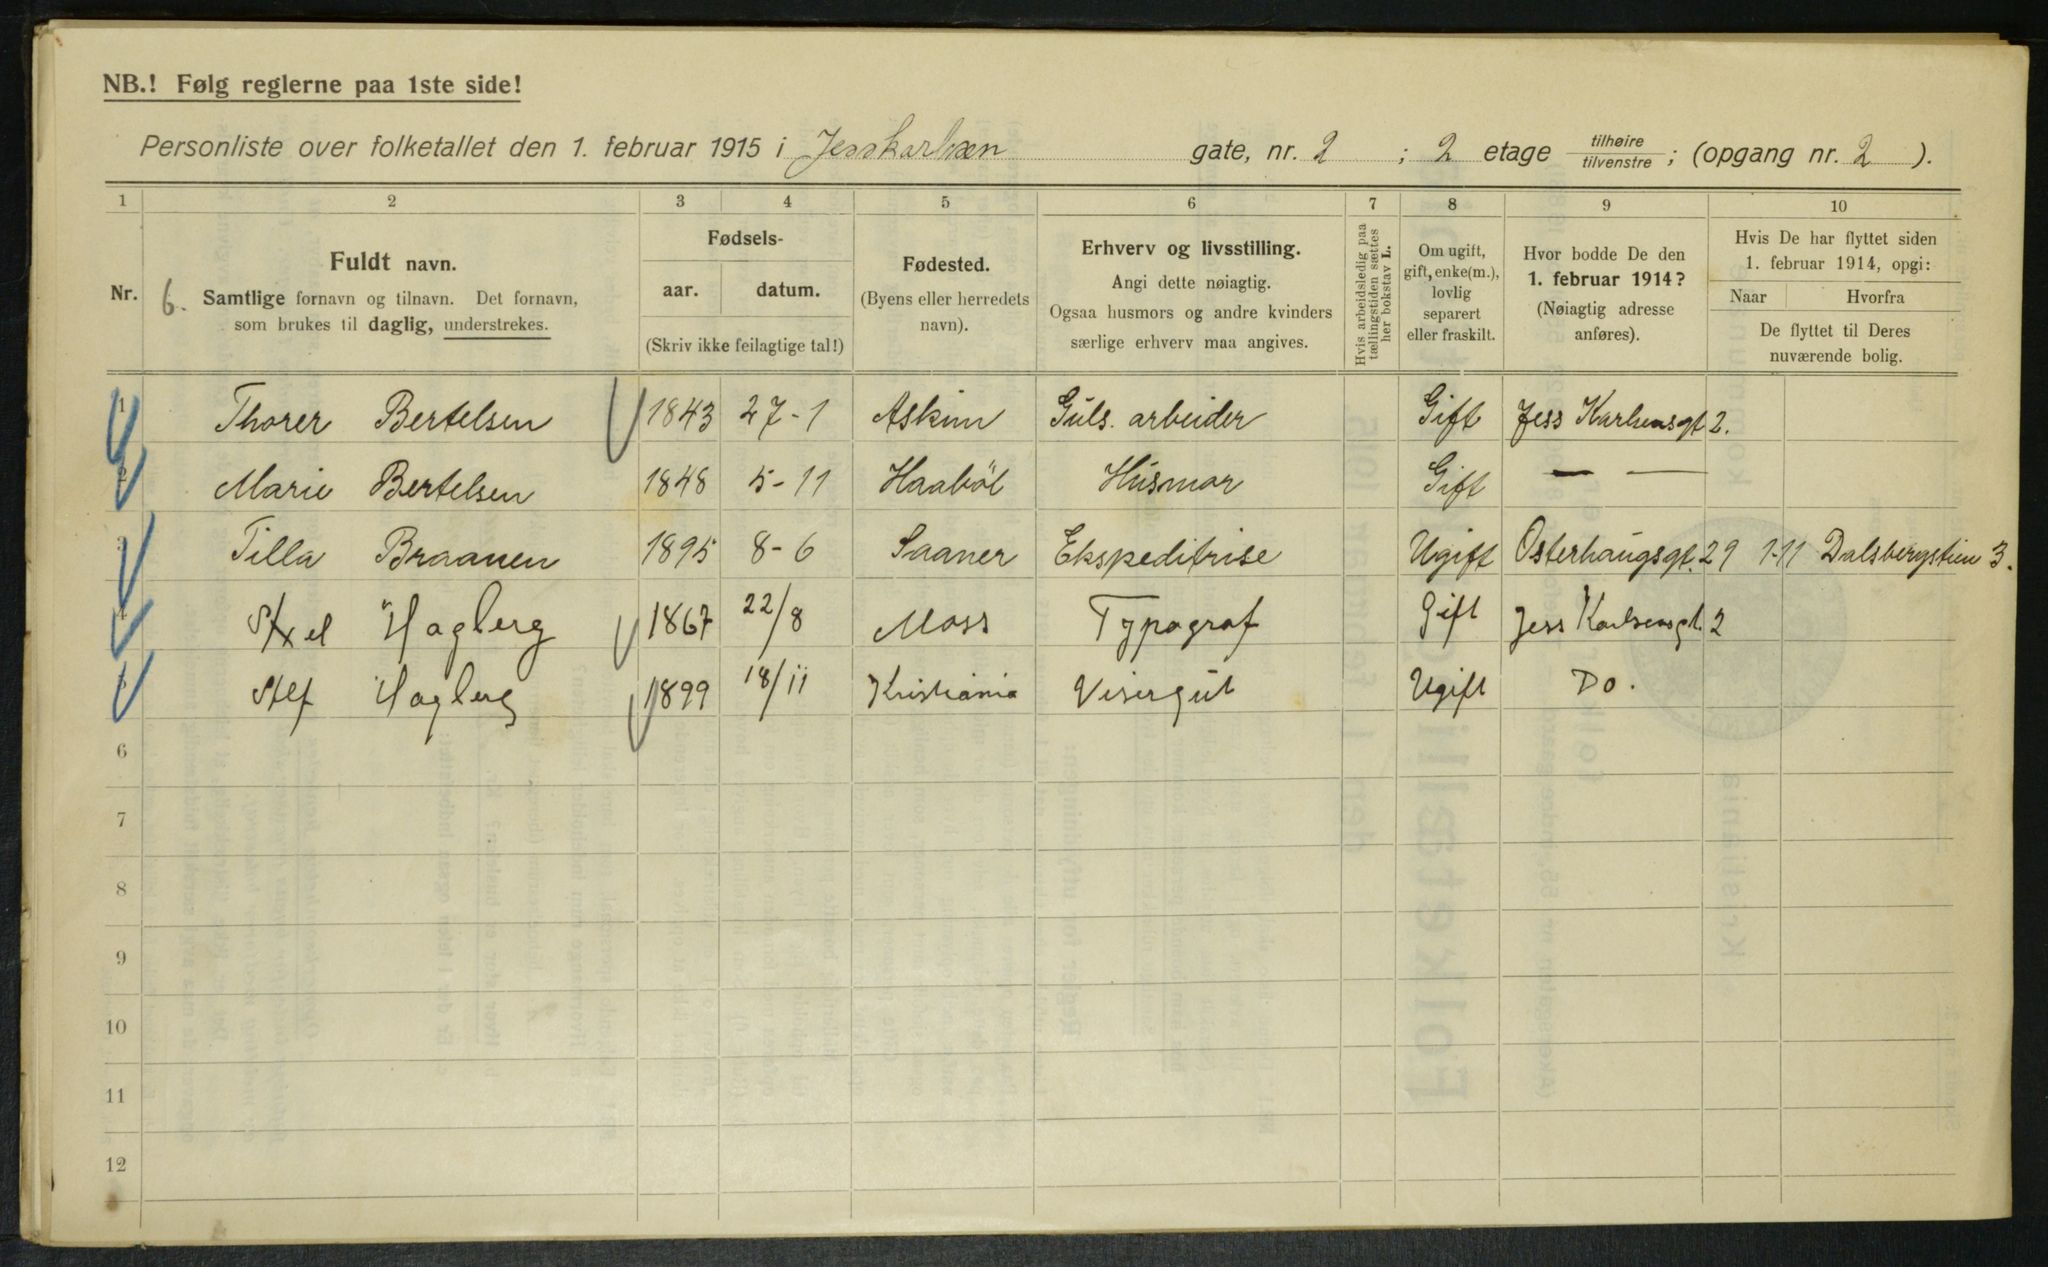 NB.! Følg reglerne paa 1ste side!
Personliste over folketallet den 1. februar 1915 i Jesskarlsen gate, nr. 2 ; 2 etage tilhøire tilvenstre ; (opgang nr. 2 ).
1 2 3 4 5 6 7 8 9 10
Nr.
6.
Fuldt navn.
Samtlige fornavn og tilnavn. Det fornavn,
som brukes til daglig, understrekes.
Fødsels-
aar. datum.
(Skriv ikke feilagtige tal!)
Fødested.
(Byens eller herredets
navn).
Erhverv og livsstilling.
Angi dette nøiagtig.
Ogsaa husmors og andre kvinders
særlige erhverv maa angives.
Hvis arbeidsledig paa
tællingstiden sættes
her bokstav L.
Om ugift,
gift, enke(m.),
lovlig
separert
eller fraskilt.
Hvor bodde De den
1. februar 1914?
(Nøiagtig adresse
anføres).
Hvis De har flyttet siden
1. februar 1914, opgi:
Naar Hvorfra
De flyttet til Deres
nuværende bolig.
1 Thorer Bertelsen 1843 27-1 Askim Guls. arbeider Gift Jess Karlsensgt 2.
2 Marie Bertelsen 1848 5-11 Haaböl Husmor Gift — —
3 Tilla Braanen 1895 8-6 Saaner Ekspeditrise Ugift Osterhaugsgt. 29 1-11 Dalsbergstien 3.
4 Axel Hagberg 1867 22/8 Moss Typograf Gift Jess Karlsensgt. 2
5 Alf Hagberg 1899 18/11 Kristiania Visergut Ugift Do.
6
7
8
9
10
11
12